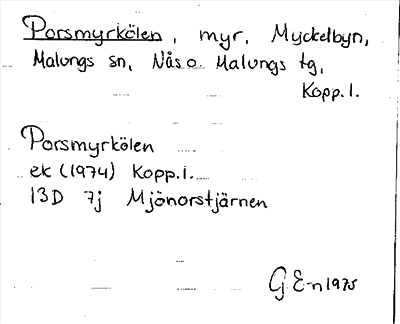 Porsmyrkölen, myr, Myckelbyn,
Malungs sn, Nås o. Malungs tg,
Kopp. l.
Porsmyrkölen
ek (1974) Kopp. l.
13D 7j Mjönorstjärnen
G E-n 1975